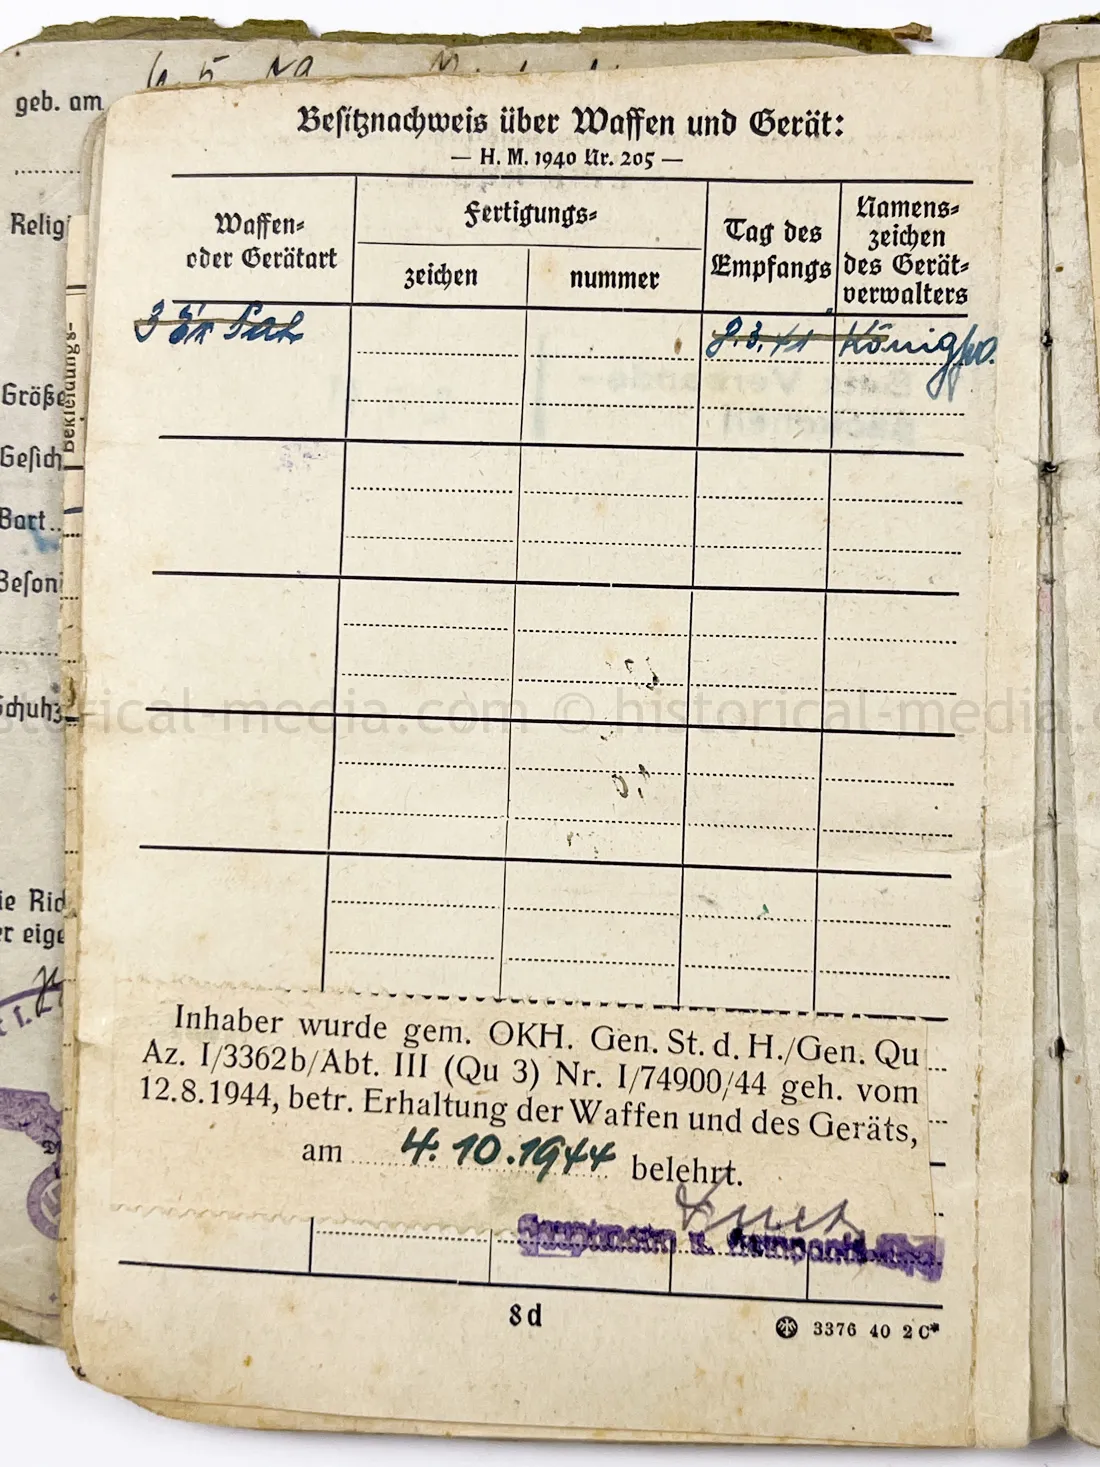 geb. am
Relig
Größe
Gesich
Bart
Beson
Schuhz
ie Rich
er eige
Bekleidungs-
Besitznachweis über Waffen und Gerät:
— H. M. 1940 Nr. 205 —
Waffen-
oder Gerätart
Fertigungs-
zeichen
nummer
Tag des
Empfangs
Namens-
zeichen
des Gerät-
verwalters
3 Ex Pat
8.3.41
König
historical-media.com © historical-media.
Inhaber wurde gem. OKH. Gen. St. d. H./Gen. Qu
Az. I/3362b/Abt. III (Qu 3) Nr. I/74900/44 geh. vom
12.8.1944, betr. Erhaltung der Waffen und des Geräts,
am 4.10.1944 belehrt.
Hauptmann u. Kompanie
8d
3376 40 2 C*